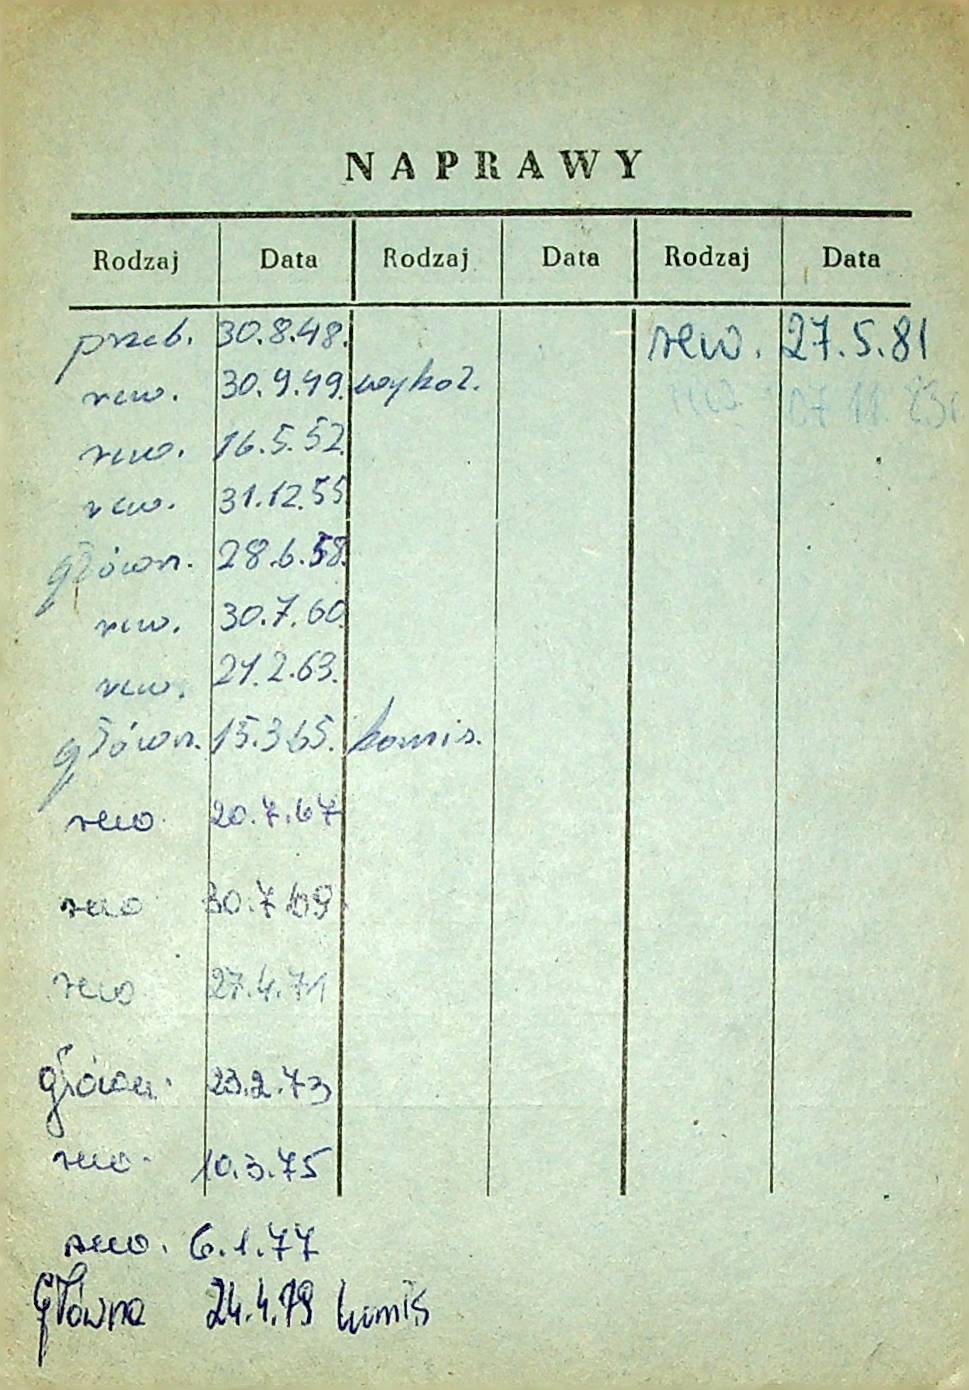 NAPRAWY
Rodzaj Data Rodzaj Data Rodzaj Data
przeb. 30.8.48. rew. 27.5.81
rew. 30.9.49. wykol. 07 11. 83
rew. 16.5.52.
rew. 31.12.55
główn. 28.6.58.
rew. 30.7.60.
rew. 21.2.63.
główn. 15.3.65. komis.
rew. 20.7.67
rew 30.7.69.
rew 27.4.71
główn. 23.2.73
rew. 10.3.75
rew. 6.1.77
Główna 24.4.79 komis